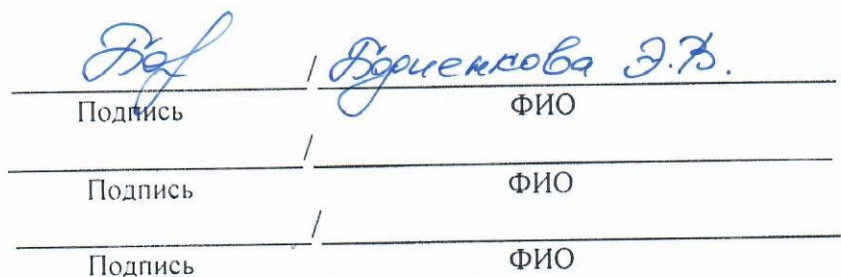 / Бодиенкова Э.В.
Подпись ФИО
/
Подпись ФИО
/
Подпись ФИО